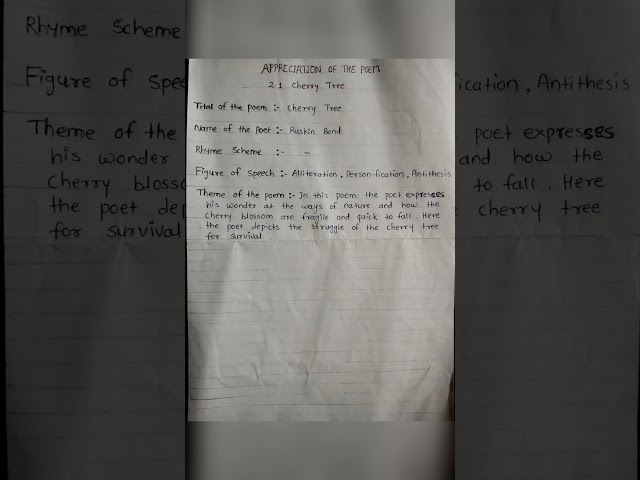 APPRECIATION OF THE POEM
2.1 Cherry Tree
Tital of the poem :- Cherry Tree
Name of the poet :- Ruskin Bond
Rhyme Scheme :- -
Figure of Speech :- Alliteration, Personification, Antithesis
Theme of the poem :- In this poem the poet expresses
his wonder at the ways of nature and how the
cherry blossom are fragile and quick to fall. Here
the poet depicts the struggle of the cherry tree
for survival
Rhyme Scheme
Figure of Spee
ication, Antithesis
Theme of the
poet expresses
his wonder
and how the
cherry blosso
to fall. Here
the poet dep
cherry tree
for survival